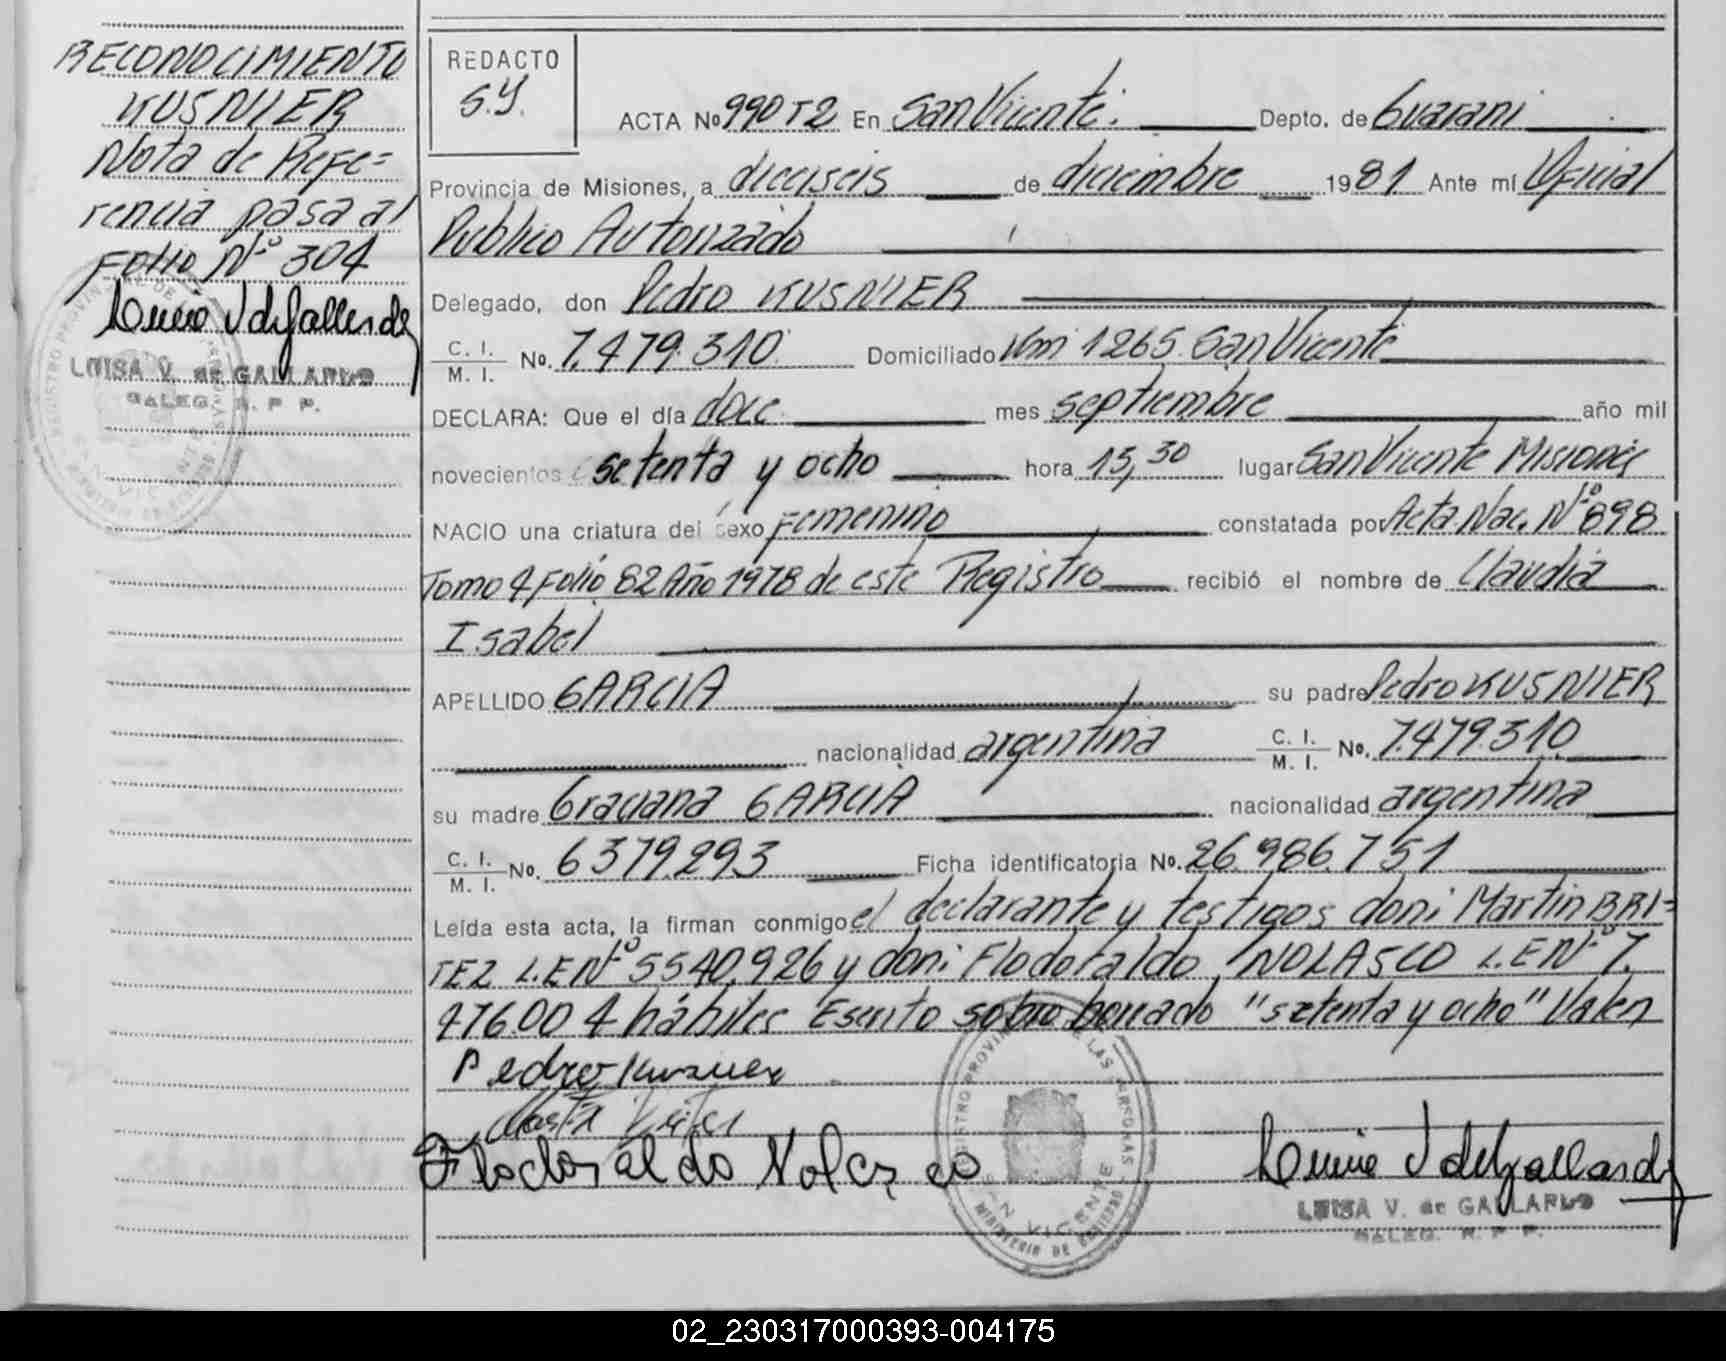 RECONOCIMIENTO
KUSNIER
Nota de Refe=
rencia pasa al
Folio Nº 304
LUISA V. de GALLARDO
DALEG. R. P. P.
REDACTO
S.Y.
ACTA No 990 T2 En San Vicente. Depto. de Guarani
Provincia de Misiones, a dieciseis de diciembre 1981 Ante mí Oficial
Publico Autorizado
Delegado, don Pedro KUSNIER
C. I. / M. I. No. 7.479.310. Domiciliado Km 1265. San Vicente
DECLARA: Que el día doce mes septiembre año mil
novecientos setenta y ocho hora 15,30 lugar San Vicente Misiones
NACIO una criatura del sexo Femenino constatada por Acta. Nac. Nº 898
Tomo 4 Folio 82 Año 1978 de este Registro recibió el nombre de Claudia
Isabel
APELLIDO GARCIA su padre Pedro KUSNIER
nacionalidad argentina C. I. / M. I. No. 7.479.310.
su madre Graciana GARCIA nacionalidad argentina
C. I. / M. I. No. 6379.293 Ficha identificatoria No. 26.986.751
Leída esta acta, la firman conmigo el declarante y testigos don: Martin BRI=
TEZ L.E Nº 5540.926 y don: Flodoraldo NOLASCO L.E Nº 7.
476.004 hábiles Escrito sobre borrado "setenta y ocho" Valen
Pedro Kusnier
Flodoraldo Nolasco
REGISTRO PROVINCIAL DE LAS PERSONAS
SAN VICENTE
MINISTERIO DE GOBIERNO
LUISA V. de GALLARDO
DALEG. R. P. P.
02_230317000393-004175